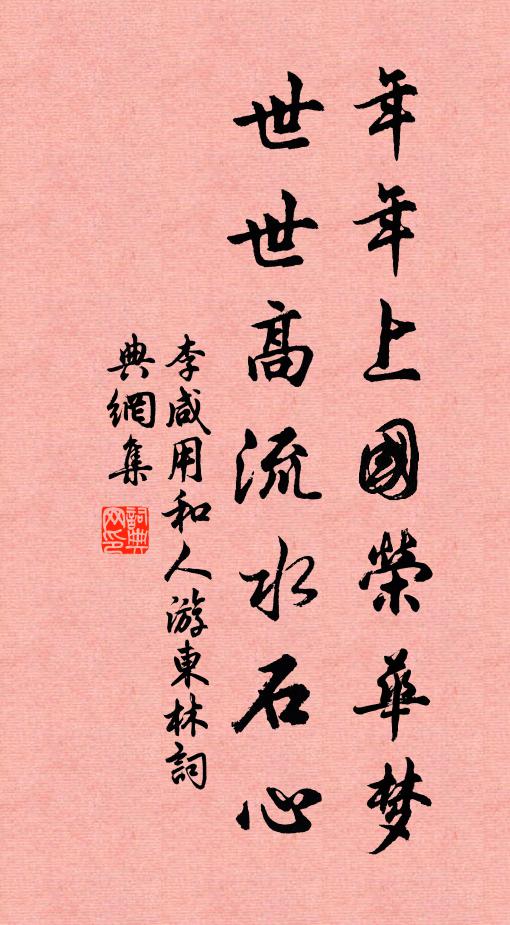 年年上國榮華梦
世世高流水石心
李咸用和人游東林詞
典網集
詞典
网印